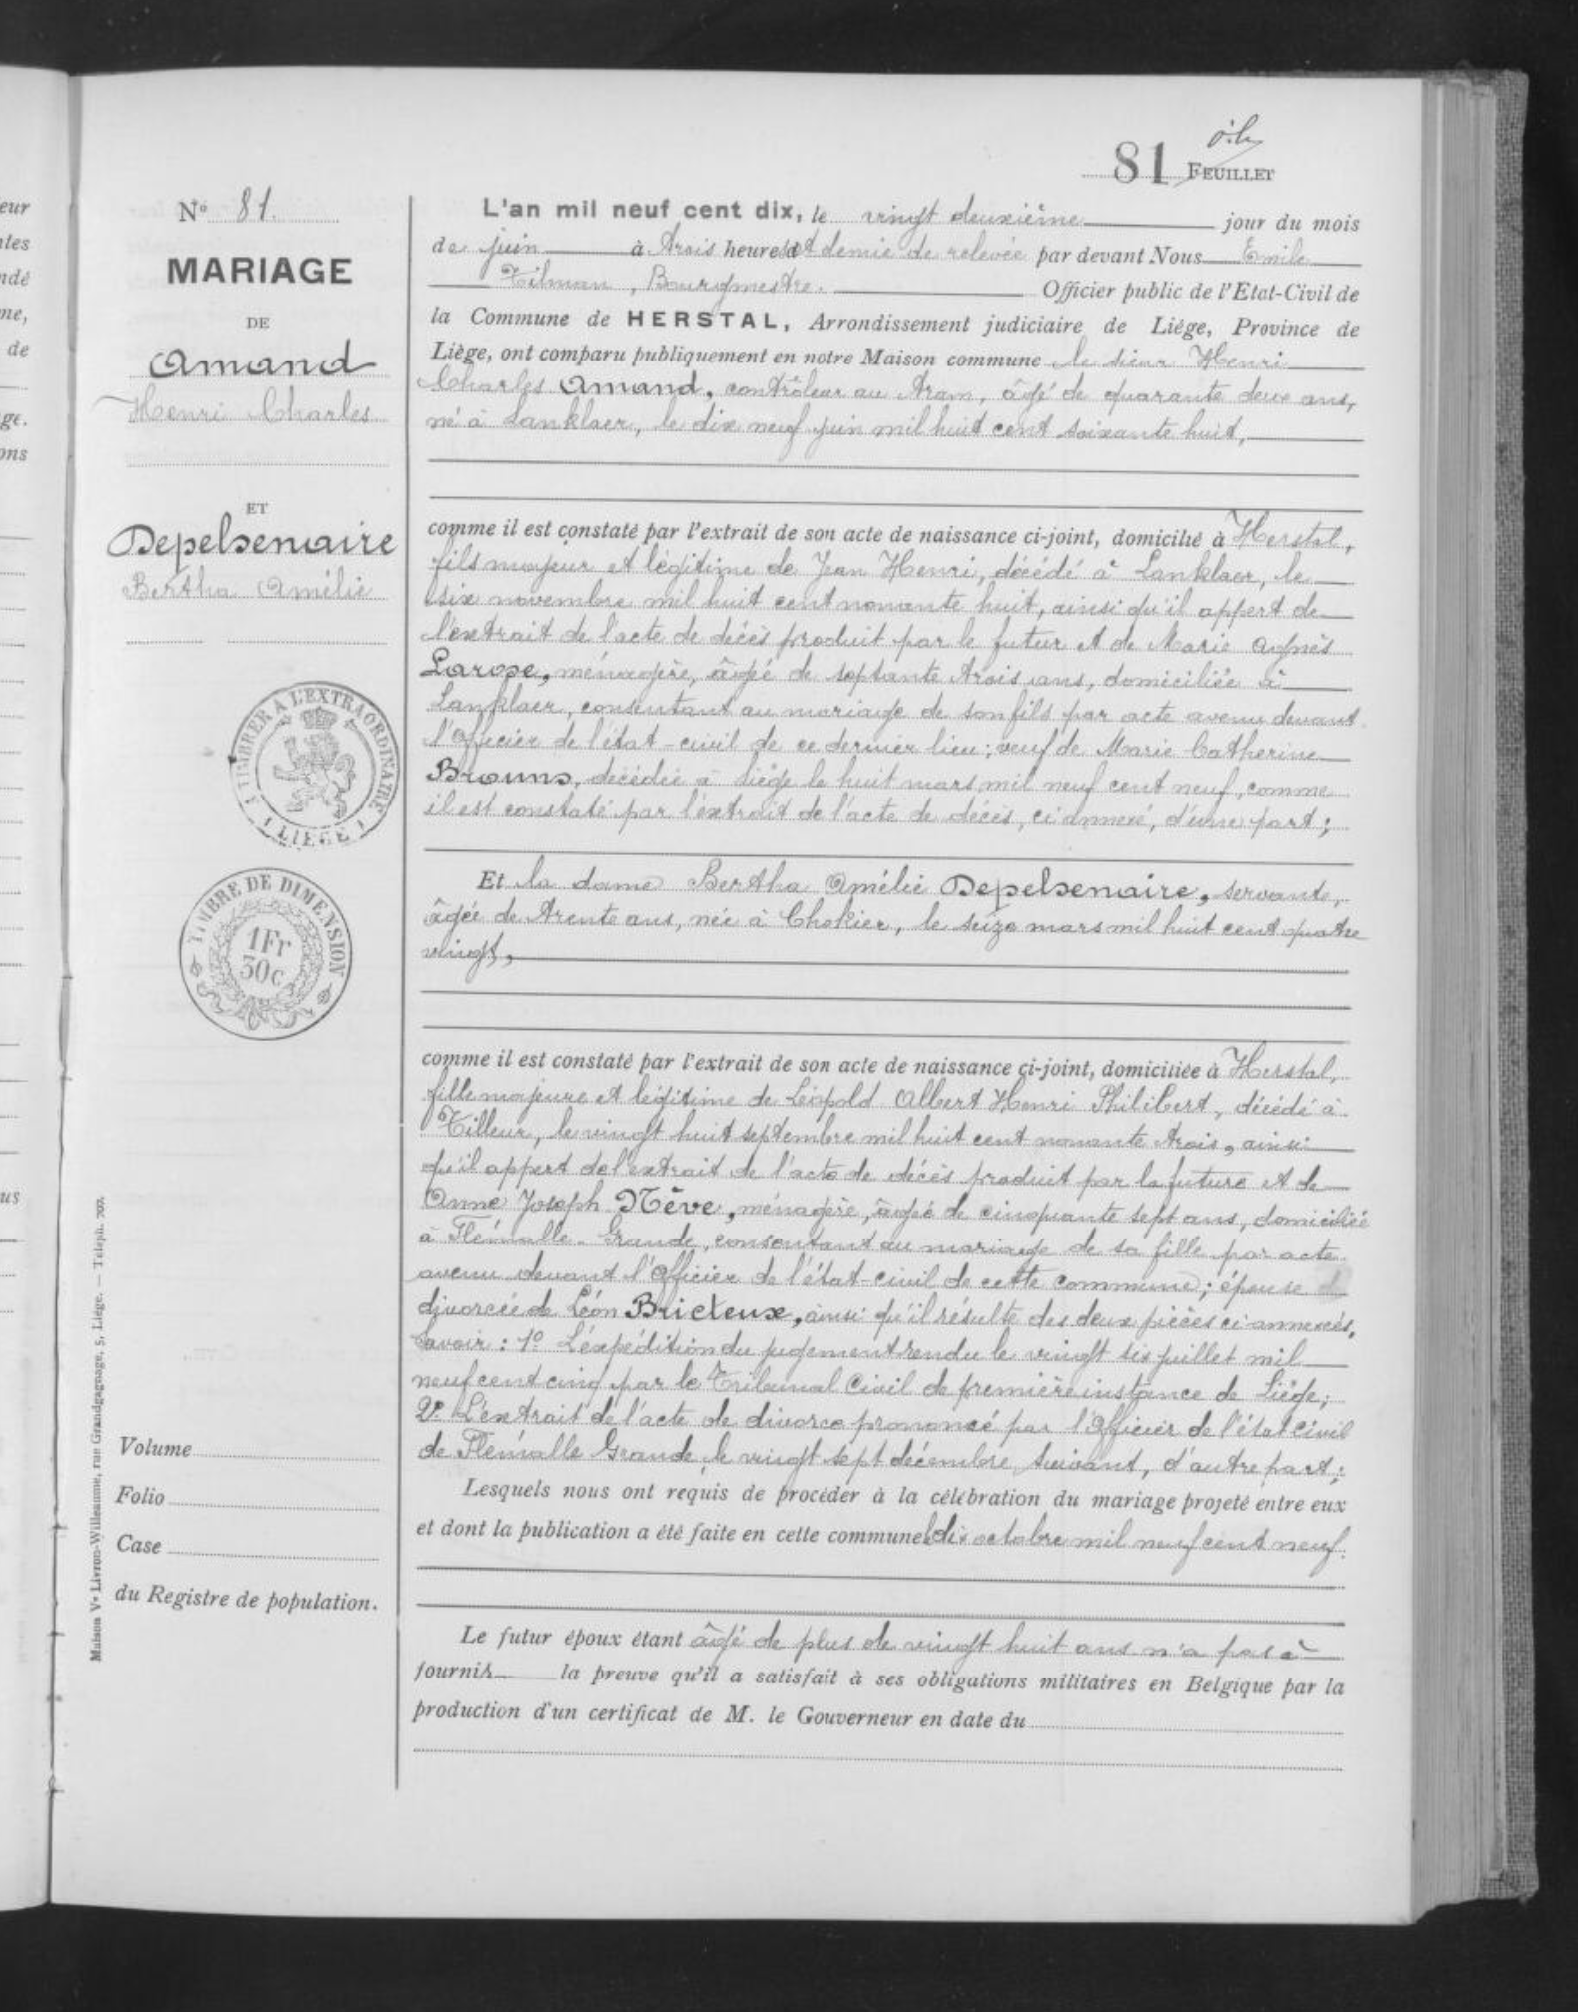 81 FEUILLET
N° 81.
MARIAGE
DE
Amand
Henri Charles
ET
Depelsenaire
Bertha Amélie
TIMBRE A L'EXTRAORDINAIRE
LIEGE
TIMBRE DE DIMENSION
1Fr
50c
Volume
Folio
Case
du Registre de population.
Maison Ve Livron-Willeaume, rue Grandgagnage, 5, Liége. — Téléph.
L'an mil neuf cent dix, le vingt deuxième jour du mois
de juin à trois heures et demie de relevée par devant Nous Emile
Tilman, Bourgmestre. Officier public de l'Etat-Civil de
la Commune de HERSTAL, Arrondissement judiciaire de Liége, Province de
Liège, ont comparu publiquement en notre Maison commune le sieur Henri
Charles Amand, contrôleur au tram, âgé de quarante deux ans,
né à Lanklaer, le dix neuf juin mil huit cent soixante huit,
comme il est constaté par l'extrait de son acte de naissance ci-joint, domicilié à Herstal,
fils majeur et légitime de Jean Henri, décédé à Lanklaer, le
six novembre mil huit cent nonante huit, ainsi qu'il appert de
l'extrait de l'acte de décès produit par le futur et de Marie Agnès
Larose, ménagère, âgé de septante trois ans, domiciliée à
Lanklaer, consentant au mariage de son fils par acte avenu devant
l'officier de l'état-civil de ce dernier lieu; veuf de Marie Catherine
Brouns, décédée à Liége le huit mars mil neuf cent neuf, comme
il est constaté par l'extrait de l'acte de décès, ci annexé, d'une part;
Et la dame Bertha Amélie Depelsenaire, servante,
âgée de trente ans, née à Chokier, le seize mars mil huit cent quatre
vingt,
comme il est constaté par l'extrait de son acte de naissance ci-joint, domiciliée à Herstal,
fille majeure et légitime de Léopold Albert Henri Philibert, décédé à
Tilleur, le vingt huit septembre mil huit cent nonante trois, ainsi
qu'il appert de l'extrait de l'acte de décès produit par la future et de
Anne Joseph Nève, ménagère, âgée de cinquante sept ans, domiciliée
à Flémalle-Grande, consentant au mariage de sa fille par acte
avenu devant l'Officier de l'état-civil de cette commune; épouse
divorcée de Léon Bricteux, ainsi qu'il résulte des deux pièces ci annexées,
savoir: 1° L'expédition du jugement rendu le vingt six juillet mil
neuf cent cinq par le Tribunal Civil de première instance de Liége;
2° L'extrait de l'acte de divorce prononcé par l'Officier de l'état civil
de Flémalle Grande, le vingt sept décembre suivant, d'autre part;
Lesquels nous ont requis de procéder à la célébration du mariage projeté entre eux
et dont la publication a été faite en cette commune le dix octobre mil neuf cent neuf.
Le futur époux étant âgé de plus de vingt huit ans n'a pas à
fournir la preuve qu'il a satisfait à ses obligations militaires en Belgique par la
production d'un certificat de M. le Gouverneur en date du
eur
ntes
ndé
me,
de
ge.
ons
us